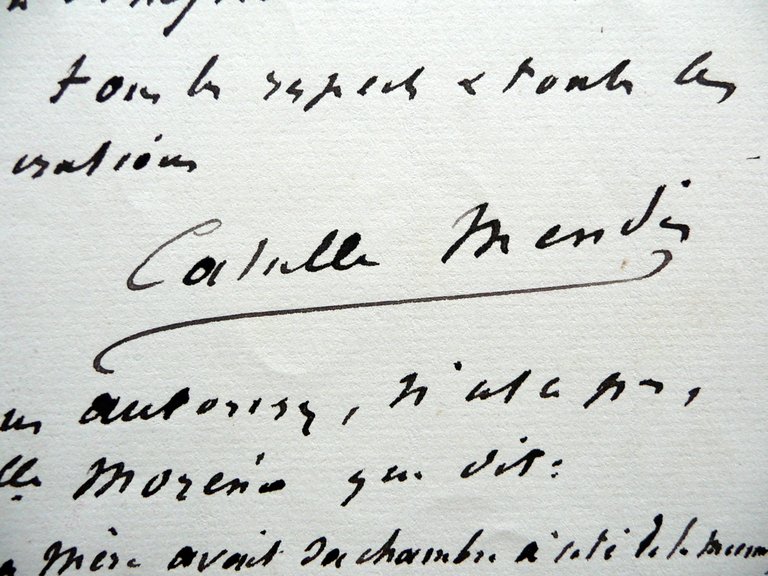 tous les respects & toutes les
Catulle Mendès
autorisez, n'est-ce pas,
Moréno qui dit:
mère avait sa chambre à côté de la mienne